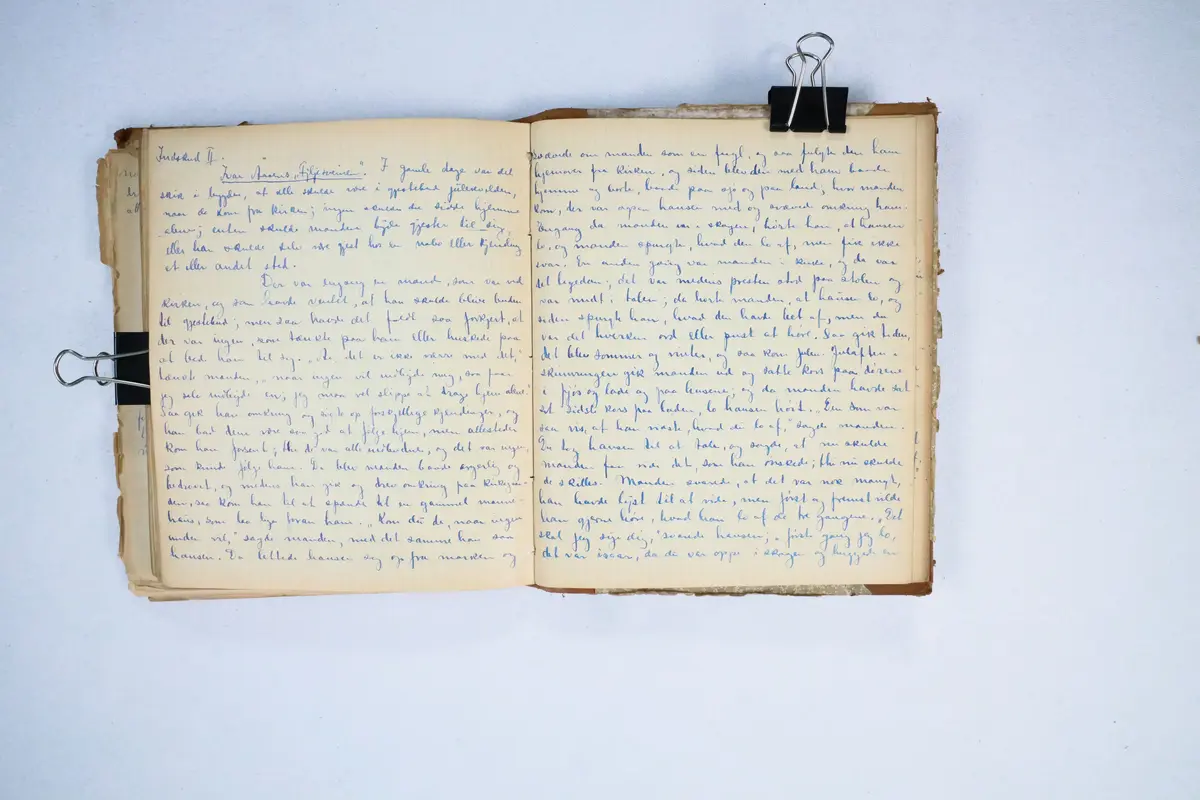 Indskud II.
Ivar Aasens „Fylgisveinen". I gamle dage var det
skik i bygden, at alle skulde være i gjestebud julekvelden,
naar de kom fra kirken; ingen skulde da sidde hjemme
alene; enten skulde manden byde gjester til sig,
eller han skulde selv være gjest hos en nabo eller kjending
et eller andet sted.
Der var engang en mand, som var ved
kirken, og som havde ventet, at han skulde blive buden
til gjestebud; men saa havde det faldt saa forkjert, at
der var ingen, som tænkte paa ham eller huskede paa
at bed ham til sig. „Aa det er ikke værre med det,"
tænkte manden, „naar ingen vil indbyde mig, saa faar
jeg selv indbyde en; jeg maa vel slippe at drage hjem alene".
Saa gik han omkring og søgte op forskjellige kjendinger, og
han bad dem være saa god at følge hjem, men allesteder
kom han forsent; thi de var alle indbudne, og det var ingen,
som kunde følge ham. Da blev manden baade ærgerlig og
bedrøvet, og medens han gik og drev omkring paa kirkegaar-
den, saa kom han til at spænde til en gammel mande-
haus, som laa lige foran ham. „Kom du da, naar ingen
anden vil," sagde manden, med det samme han saa
hausen. Da lettede hausen sig op fra marken og
svævede om manden som en fugl, og saa fulgte den ham
hjemover fra kirken, og siden blev den med ham baade
hjemme og borte, baade paa sjø og paa land; hvor manden
kom, der var ogsaa hausen med og svæved omkring ham.
Engang da manden var i skogen, hørte han, at hausen
lo, og manden spurgte, hvad den lo af, men fik ikke
svar. En anden gang var manden i kirke, og da var
det ligedan; det var medens presten stod paa stolen og
var midt i talen; da hørte manden, at hausen lo, og
siden spurgte han, hvad den havde leet af, men da
var det hverken ord eller pust at høre. Saa gik tiden,
det blev sommer og vinter, og saa kom julen. Juleaften i
skumringen gik manden ud og satte kors paa dørene
i fjøs og lade og paa husene; og da manden havde sat
det sidste kors paa laden, lo hausen høit. „Den som var
saa vis, at han vidste, hvad du lo af," sagde manden.
Da tog hausen til at tale, og sagde, at nu skulde
manden faa vide det, som han ønskede; thi nu skulde
de skilles. Manden svarede, at det var nok mangt,
han havde lyst til at vide, men først og fremst vilde
han gjerne høre, hvad han lo af de tre gangene. „Det
skal jeg sige dig," svarede hausen; „første gang jeg lo,
det var ifjor, da du var oppe i skogen og huggede en